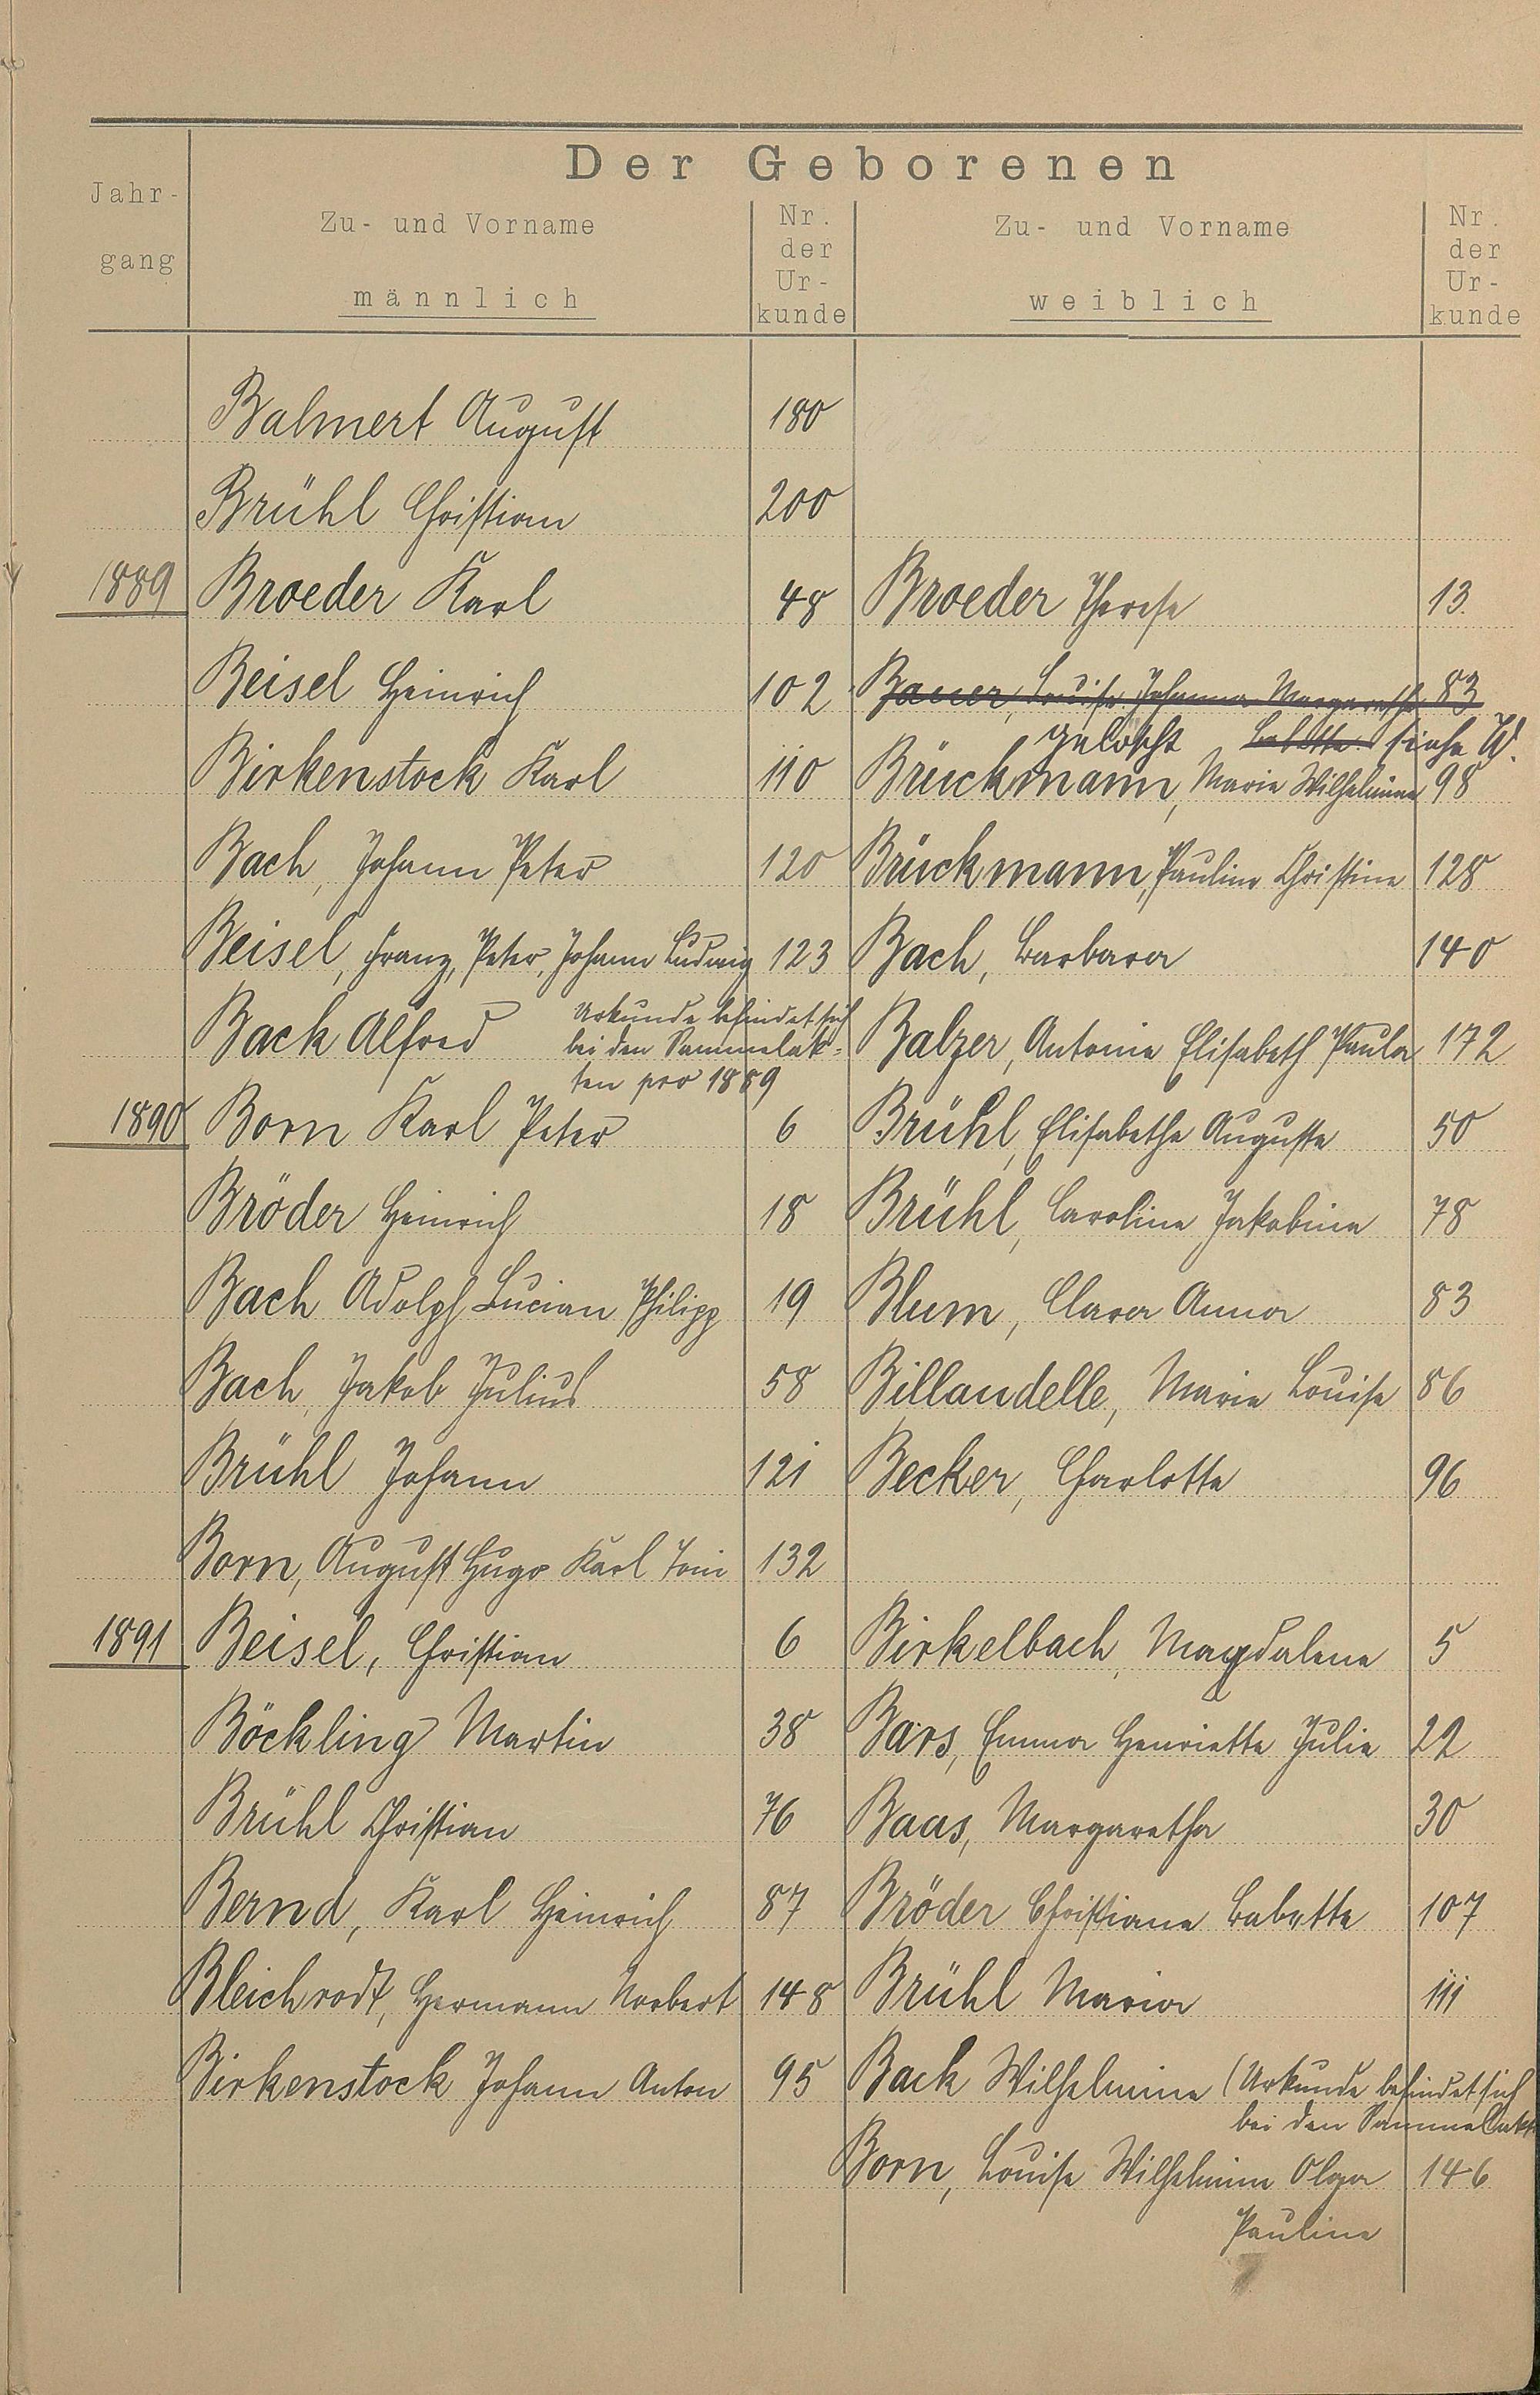 Der Geborenen
Jahr-
gang
Zu- und Vorname
männlich
Nr.
der
Ur-
kunde
Zu- und Vorname
weiblich
Nr.
der
Ur-
kunde
Balmert August 180
Brühl Christian 200
1889 Broeder Karl 48 Broeder Therese 13.
Beisel Heinrich 102 Bauer, Louise Johanna Margarethe 83
gelöscht Babette siehe W.
Birkenstock Karl 110 Brückmann, Marie Wilhelmine 98
Bach, Johann Peter 120 Brückmann, Pauline Christine 128
Beisel, Franz, Peter, Johann Ludwig 123 Bach, Barbara 140
Back Alfred Urkunde befindet sich
bei den Sammelak-
ten pro 1889
Balzer, Antonie Elisabeth Paula 172
1890 Born Karl Peter 6 Brühl, Elisabethe Auguste 50
Bröder Heinrich 18 Brühl, Caroline Jakobine 78
Bach Adolph Lucian Philipp 19 Blum, Clara Anna 83
Bach, Jakob Julius 58 Billaudelle, Marie Louise 86
Brühl Johann 121 Becker, Charlotte 96
Born, August Hugo Karl Toni 132
1891 Beisel, Christian 6 Birkelbach, Magdalene 5
Böckling Martin 38 Bars, Emma Henriette Julie 22
Brühl Christian 76 Baas, Margaretha 30
Bernd, Karl Heinrich 87 Bröder Christiane Babette 107
Bleichrodt, Hermann Norbert 148 Brühl Maria 111
Birkenstock Johann Anton 95 Back Wilhelmine (Urkunde befindet sich
bei den Sammelakt
Born, Louise Wilhelmine Olga 146
Pauline